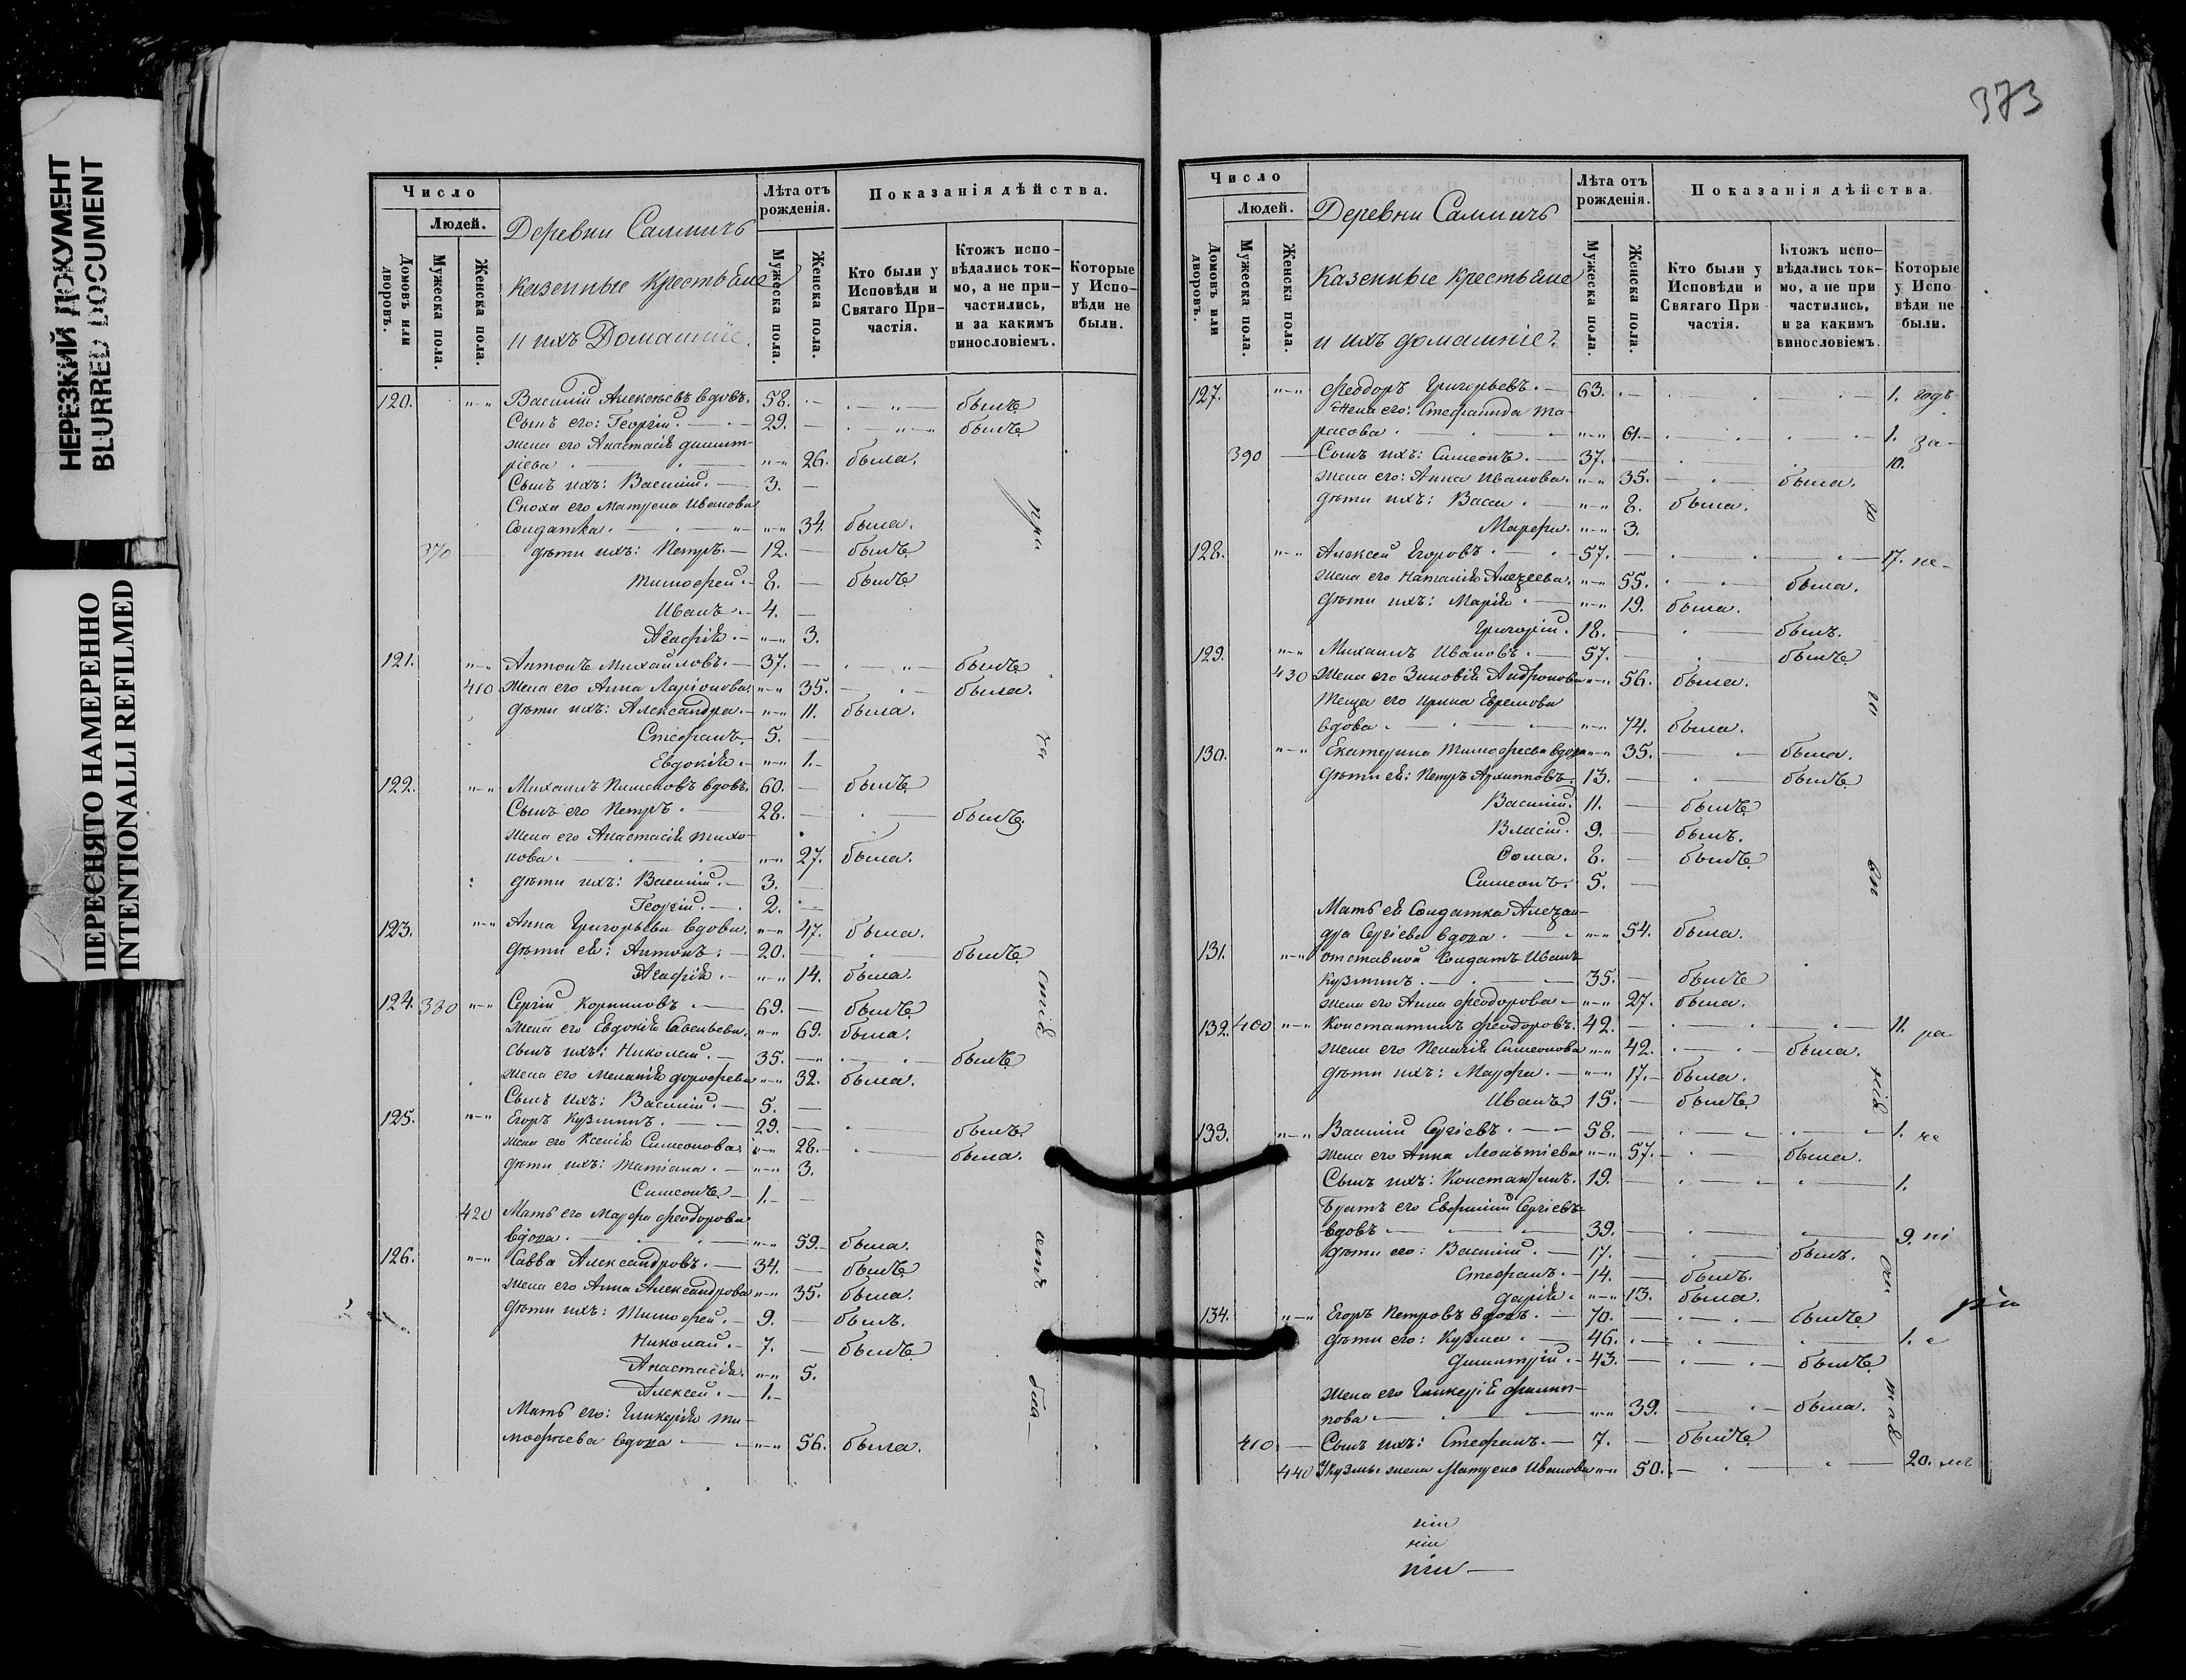 НЕРЕЗКИЙ ДОКУМЕНТ
BLURRED DOCUMENT
ПЕРЕСНЯТО НАМЕРЕННО
INTENTIONALLI REFILMED
Число
Людей.
Домовъ или дворовъ.
Мужеска пола.
Женска пола.
Деревни
казенные крестьяне
и ихъ Домашніе.
Лѣта отъ рожденія.
Мужеска пола.
Женска пола.
Показанія дѣйства.
Кто были у Исповѣди и Святаго Причастія.
Ктожъ исповѣдались токмо, а не причастились, и за какимъ винословіемъ.
Которые у Исповѣди не были.
120. Василій Алексѣевъ вдовъ. 58. былъ
Сынъ его: Георгій. 29. былъ
жена его Анастасія Димит-
ріева 26. была.
Сынъ ихъ: Василій. 3.
Сноха его Матрена Иванова
Солдатка. 34. была.
370 дѣти ихъ: Петръ. 12. былъ
Тимофей. 8. былъ
Иванъ. 4.
Агафія. 3.
121. Антонъ Михайловъ. 37. былъ
410 Жена его Анна Ларіонова 35. была.
дѣти ихъ: Александра. 11. была.
Стефанъ. 5.
Евдокія. 1.
122. Михаилъ Пименовъ вдовъ. 60. былъ
Сынъ его Петръ. 28. былъ
Жена его Анастасія Тихо-
нова. 27. была.
дѣти ихъ: Василій. 3.
Георгій. 2.
123. Анна Григорьева вдова. 47. была.
дѣти ея: Антонъ. 20. былъ
Агафія. 14. была.
124. 380 Сергій Корниловъ 69. былъ
Жена его Евдокія Савельева. 69. была.
Сынъ ихъ: Николай. 35. былъ
Жена его Меланія Дорофеева 32. была.
Сынъ ихъ: Василій. 5.
125. Егоръ Кузминъ. 29. былъ
Жена его Ксенія Симеонова. 28. была.
Дѣти ихъ: Татіана. 3.
Симеонъ 1.
420 Мать его Марфа Феодорова
вдова. 59. была.
126. Савва Александровъ. 34. былъ
Жена его Анна Александрова 35. была.
Дѣти ихъ: Тимофей. 9. былъ.
Николай. 7. былъ
Анастасія. 5.
Алексей. 1.
Мать его: Гликерія Ти-
мофѣева вдова 56. была.
373
Число
Людей.
Домовъ или дворовъ.
Мужеска пола.
Женска пола.
Деревни
Казенные крестьяне
и ихъ домашніе.
Лѣта отъ рожденія.
Мужеска пола.
Женска пола.
Показанія дѣйства.
Кто были у Исповѣди и Святаго При частія.
Ктожъ исповѣдались токмо, а не при частились, и за какимъ винословіемъ.
Которые у Испо вѣди не были.
127. Феодоръ Григорьевъ. 63. 1.
Жена его: Стефанида Та-
расова. 61. 1.
390 Сынъ ихъ: Симеонъ. 37. 10.
Жена его: Анна Иванова. 35. была.
дѣти ихъ: Васса. 8. была.
Марфа. 3.
128. Алексей Егоровъ. 57. 17.
Жена его Наталія 55. была.
Дѣти ихъ: Марія. 19. была.
Григорій. 18. былъ.
129. Михаилъ Ивановъ. 57. былъ
430 Жена его Зиновія Андронова 56. была.
Теща его Ирина Ефремова
вдова 74. была.
130. Екатерина Тимофеева вдова 35. была.
Дѣти ея: Петръ Архиповъ. 13. былъ
Василій. 11. былъ
Власій. 9. былъ.
Фома. 8. былъ
Симеонъ. 5.
Мать ея Солдатка Алезан-
дра Сергіева вдова. 54. была.
131. отставной Солдатъ Иванъ
Кузминъ. 35. былъ
Жена его Анна Феодорова 27. была.
132. 400 Константинъ Феодоровъ. 42. 11.
Жена его Пелагія Симеонова 42. была.
Дѣти ихъ: Марфа. 17. была.
Иванъ 15. былъ
133. Василій Сергіевъ. 58. 1.
Жена его Анна Леонтіева 57. была.
Сынъ ихъ: Константинъ. 19. 1.
Братъ его Евфимій Сергіевъ
вдовъ 39. 9.
Дѣти его: Василій. 17. былъ.
Стефанъ. 14. былъ.
Дарія. 13. была.
134. Егоръ Петровъ вдовъ. 70. былъ
Дѣти его: Кузма. 46. 1.
Димитрій. 43. былъ
Жена его Гликерія Филип-
пова 39. была.
410 Сынъ ихъ: Стефанъ. 7. былъ
440 Кузмы жена Матрена Иванова 50. 20.